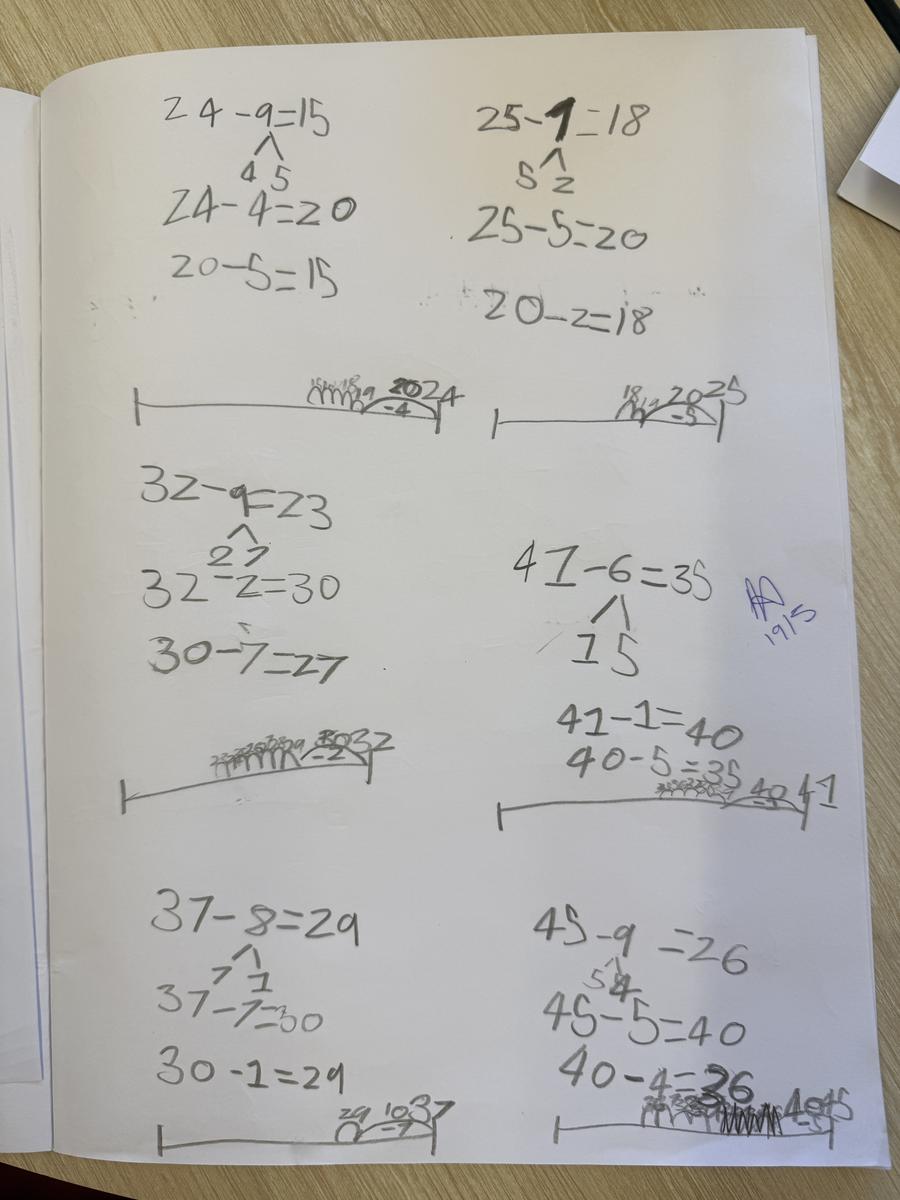 24-9=15
4 5
24-4=20
20-5=15
19 20 24
-4
25-7=18
5 2
25-5=20
20-2=18
18 19 20 25
-5
32-9=23
2 7
32-2=30
30-7=27
29 30 32
-2
41-6=35
1 5
41-1=40
40-5=35
40 41
-1
1915
37-8=29
7 1
37-7=30
30-1=29
29 10 37
-7
45-9=26
5 4
45-5=40
40-4=36
40 45
-5